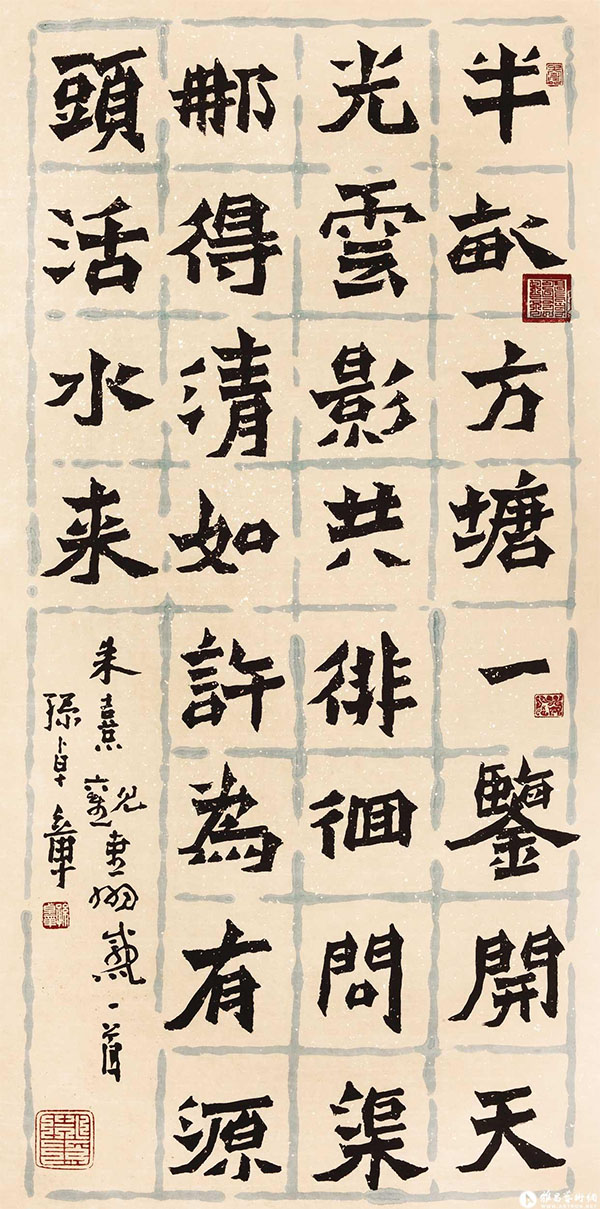 半畝方塘一鑒開天
光雲影共徘徊問渠
那得清如許為有源
頭活水来
朱熹觀書有感一首
雅昌藝術網